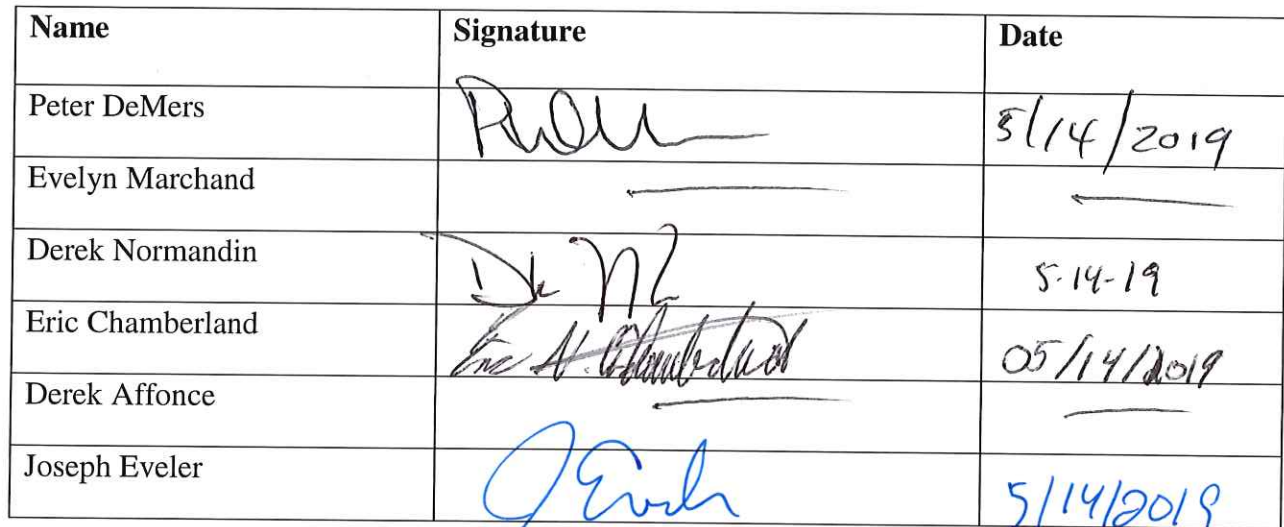 Name Signature Date
Peter DeMers 5/14/2019
Evelyn Marchand
Derek Normandin 5-14-19
Eric Chamberland Eric N. Chamberland 05/14/2019
Derek Affonce
Joseph Eveler 5/14/2019